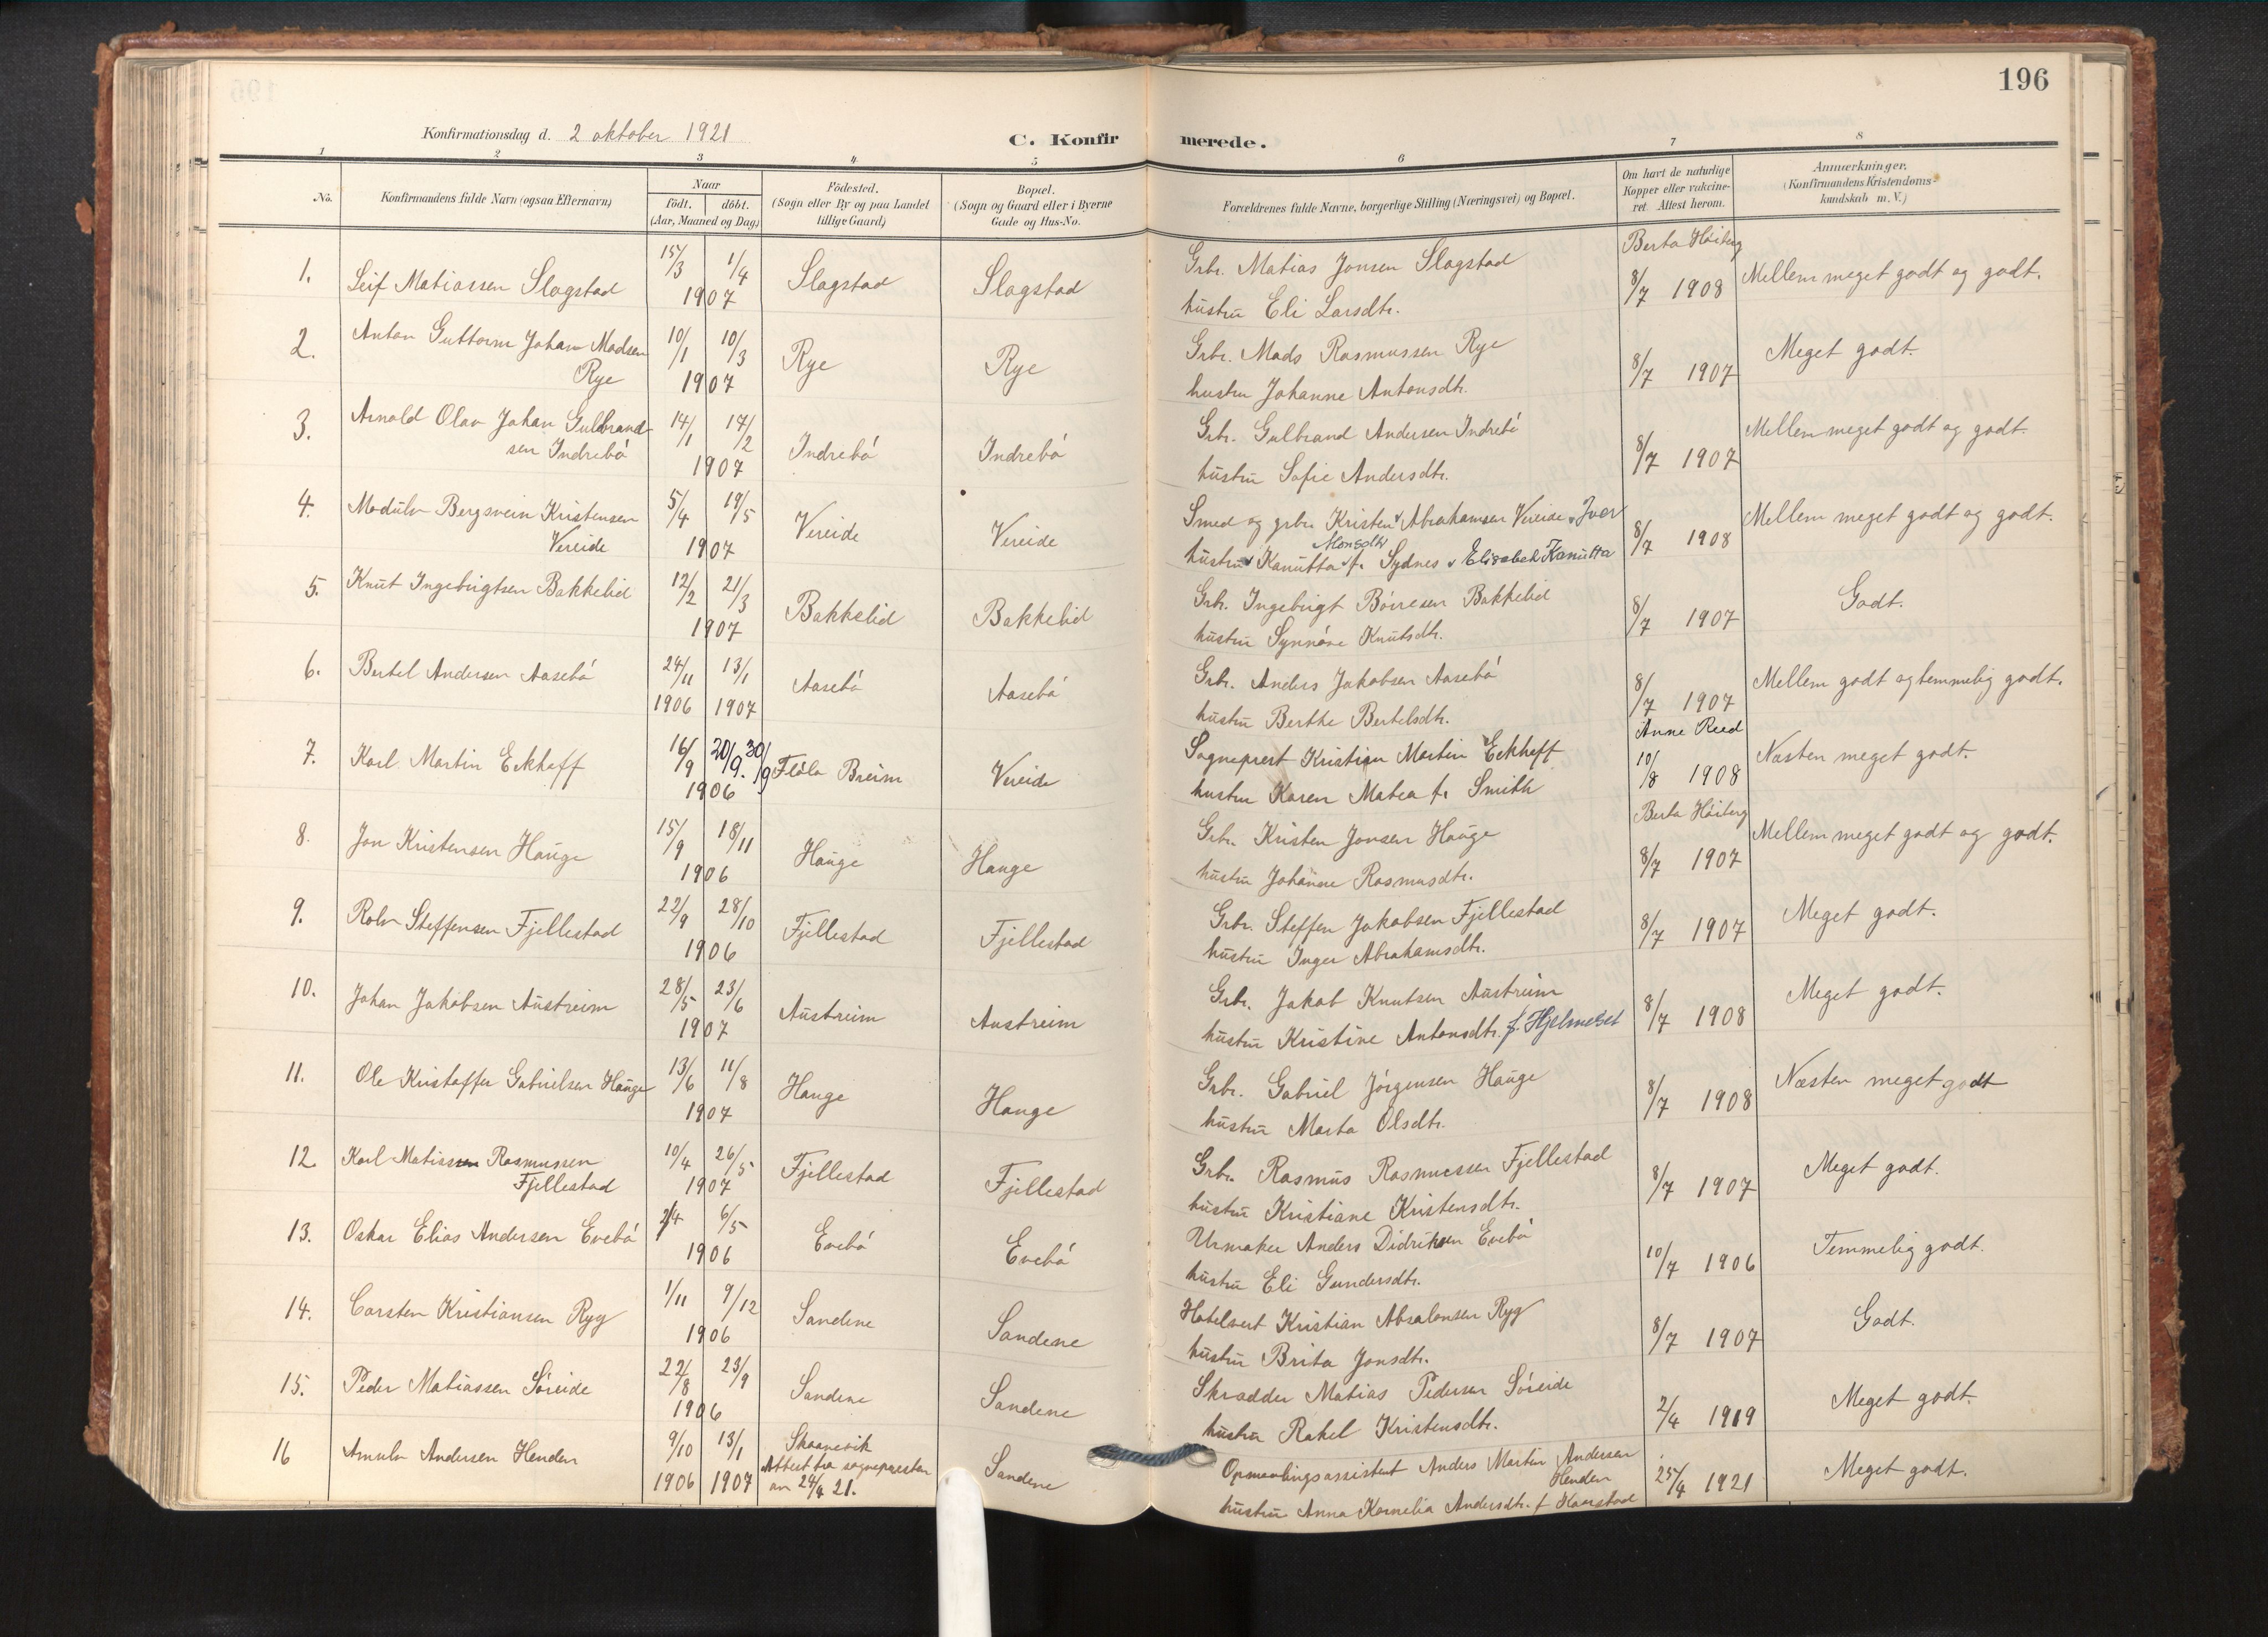 196
Konfirmationsdag d. 2 oktober 1921
C. Konfirmerede.
1 2 3 4 5 6 7 8
No.
Konfirmandens fulde Navn (ogsaa Efternavn)
Naar
født. døbt.
(Aar, Maaned og Dag)
Fødested.
(Sogn eller By og paa Landet
tillige Gaard)
Bopæl.
(Sogn og Gaard eller i Byerne
Gade og Hus-No.
Forældrenes fulde Navne, borgerlige Stilling (Næringsvei) og Bopæl.
Om havt de naturlige
Kopper eller vakcine-
ret. Attest herom.
Anmærkninger.
(Konfirmandens Kristendoms-
kundskab m. V.)
Berta Høiberg
1. Leif Matiassen Slagstad 15/3 1/4 1907 Slagstad Slagstad Grbr. Matias Jonsen Slagstad
hustru Eli Larsdtr. 8/7 1908 Mellem meget godt og godt.
2. Anton Guttorm Johan Madsen
Rye 10/1 10/3 1907 Rye Rye Grbr. Mads Rasmussen Rye
hustru Johanne Antonsdtr. 8/7 1907 Meget godt.
3. Arnold Olav Johan Gulbrand-
sen Indrebø 14/1 17/2 1907 Indrebø Indrebø Grbr. Gulbrand Andersen Indrebø
hustru Sofie Andersdtr. 8/7 1907 Mellem meget godt og godt.
4. Modulv Bergsvein Kristensen
Vereide 5/4 19/5 1907 Vereide Vereide Smed og grbr. Kristen Abrahamsen Vereide Iver
Monsdtr
hustru Kanutta f. Sydnes Elisabet Kanutta 8/7 1908 Mellem meget godt og godt.
5. Knut Ingebrigtsen Bakkelid 12/2 21/3 1907 Bakkelid Bakkelid Grbr. Ingebrigt Børresen Bakkelid
hustru Synnøve Knutsdtr. 8/7 1907 Godt.
6. Bertel Andersen Aasebø 24/11 13/1 1906 1907 Aasebø Aasebø Grbr. Anders Jakobsen Aasebø
hustru Berthe Bertelsdtr. 8/7 1907 Mellem godt og temmelig godt.
Anne Reed
7. Karl Martin Eckhoff 16/9 30/9 1906 Fløla Breim Vereide Sogneprest Kristian Martin Eckhoff
hustru Karen Matea f. Smith 10/8 1908 Næsten meget godt.
Berta Høiberg
8. Jon Kristensen Hauge 15/9 18/11 1906 Hauge Hauge Grbr. Kristen Jonsen Hauge
hustru Johanne Rasmusdtr. 8/7 1907 Mellem meget godt og godt.
9. Rolv Steffensen Fjellestad 22/9 28/10 1906 Fjellestad Fjellestad Grbr. Steffen Jakobsen Fjellestad
hustru Inger Abrahamsdtr. 8/7 1907 Meget godt.
10. Johan Jakobsen Austreim 28/5 23/6 1907 Austreim Austreim Grbr. Jakob Knutsen Austreim
hustru Kristine Antonsdtr. f. Hjelmeset 8/7 1908 Meget godt.
11. Ole Kristoffer Gabrielsen Hauge 13/6 11/8 1907 Hauge Hauge Grbr. Gabriel Jørgensen Hauge
hustru Marta Olsdtr. 8/7 1908 Næsten meget godt
12. Karl Matiassen Rasmussen
Fjellestad 10/4 26/5 1907 Fjellestad Fjellestad Grbr. Rasmus Rasmussen Fjellestad
hustru Kristiane Kristensdtr. 8/7 1907 Meget godt.
13. Oskar Elias Andersen Evebø 2/4 6/5 1906 Evebø Evebø Urmaker Anders Didriksen Evebø
hustru Eli Gundersdtr. 10/7 1906 Temmelig godt.
14. Carsten Kristiansen Ryg 1/11 9/12 1906 Sandene Sandene Hotelvert Kristian Absalonsen Ryg
hustru Brita Jonsdtr. 8/7 1907 Godt.
15. Peder Matiassen Søreide 22/8 23/9 1906 Sandene Sandene Skrædder Matias Pedersen Søreide
hustru Rakel Kristensdtr. 2/4 1919 Meget godt.
16 Arnulv Andersen Henden 9/10 13/1 1906 1907 Skaanevik
Attest fra sognepresten
av 24/4 21. Sandene Opmaalingsassistent Anders Martin Andersen
Henden
hustru Anna Kornelia Andersdtr. f. Kaarstad 25/4 1921 Meget godt.